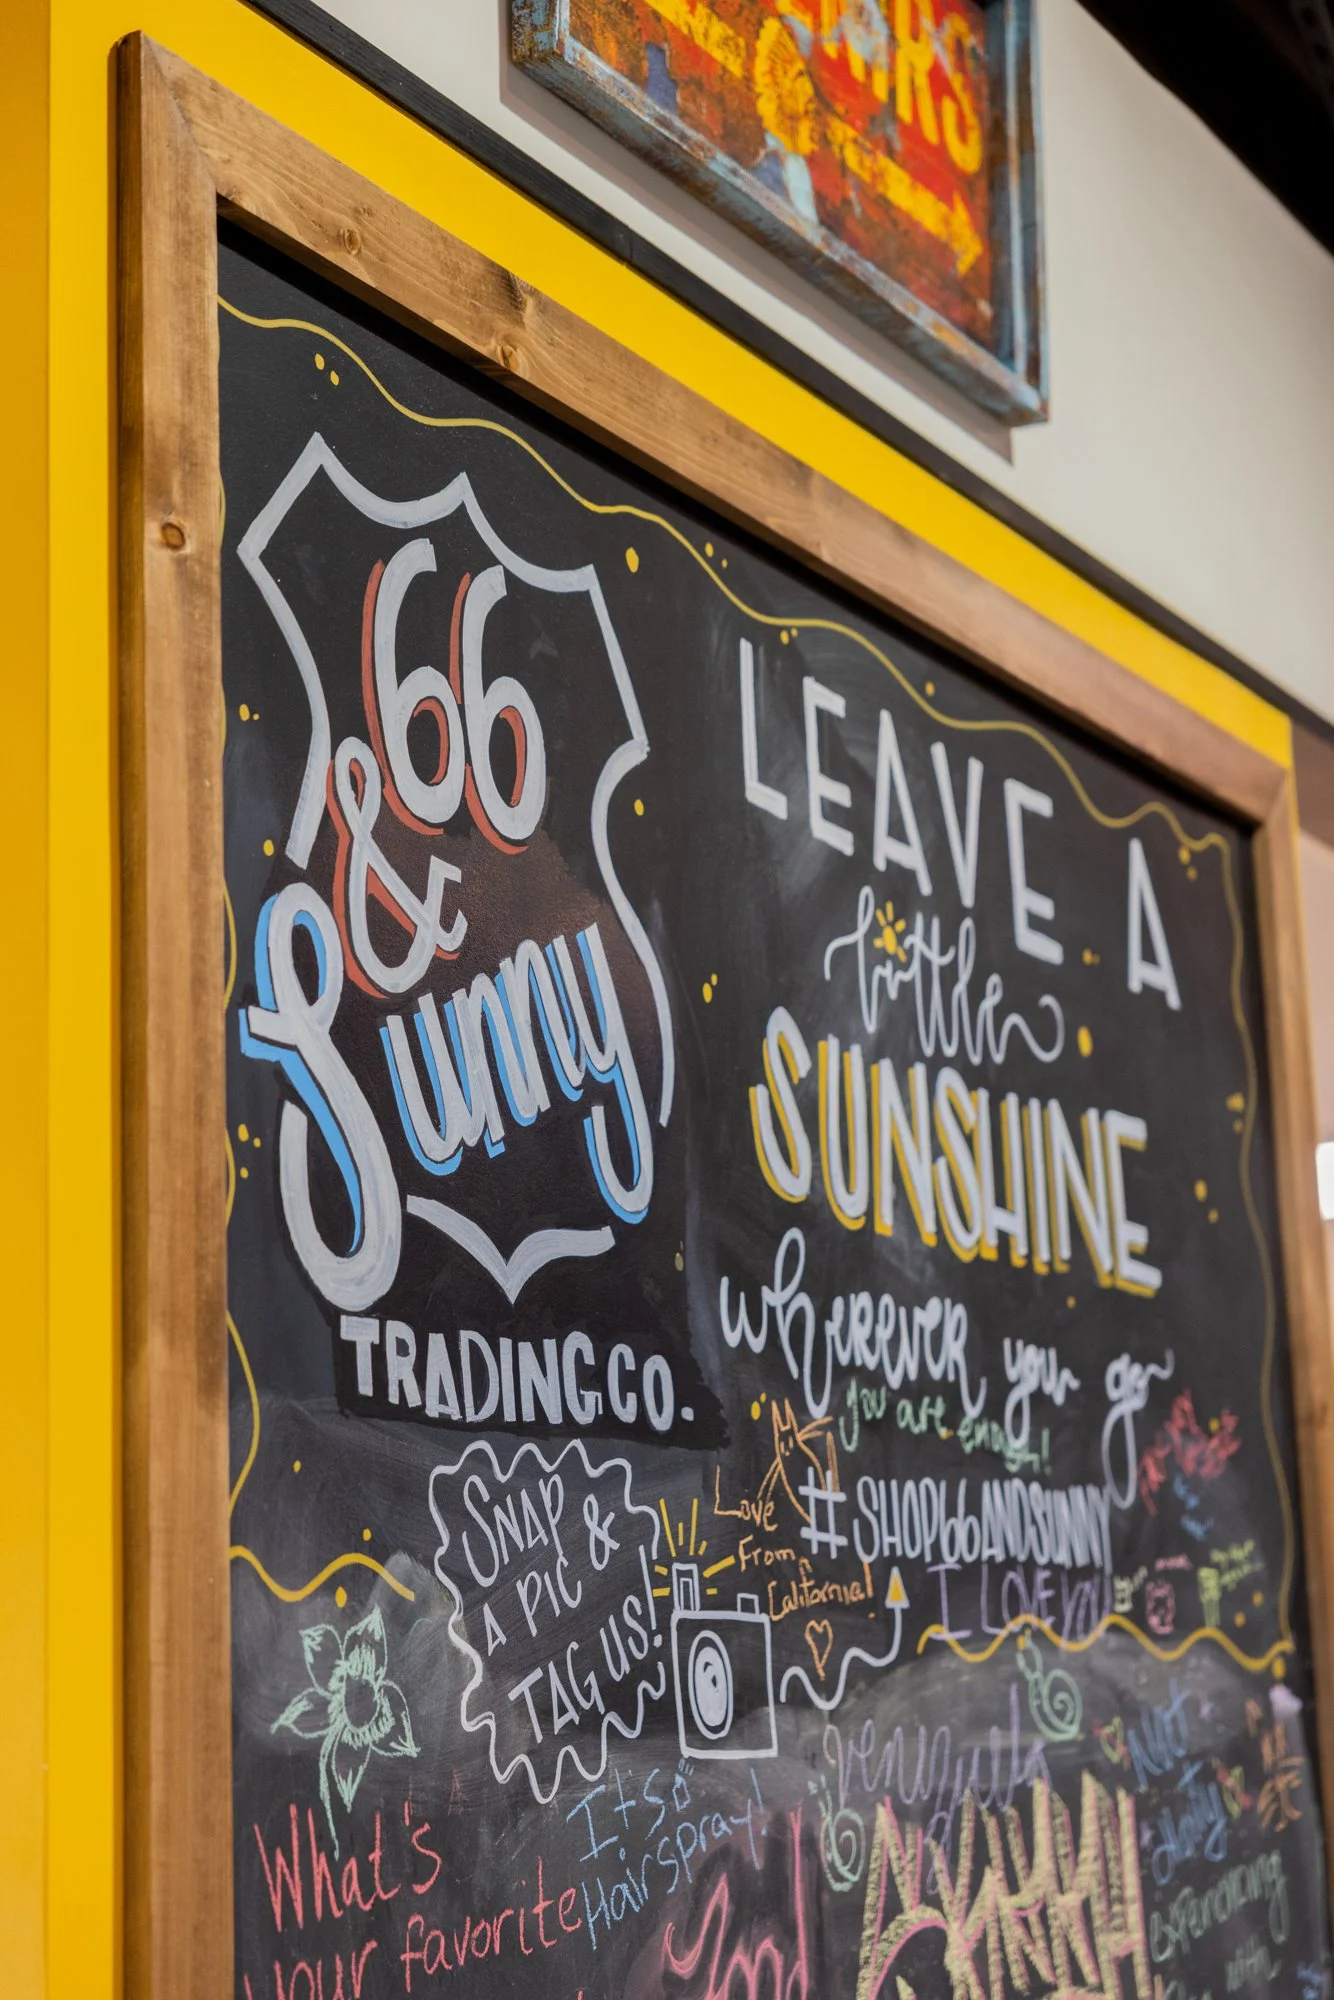 66
&
Sunny
TRADING CO.
LEAVE A
little
SUNSHINE
wherever you go
you are enough!
#SHOP66ANDSUNNY
SNAP
A PIC &
TAG US!
Love
From
California!
I LOVE YOU
It's
Hairspray!
What's
your favorite
Not
experiencing